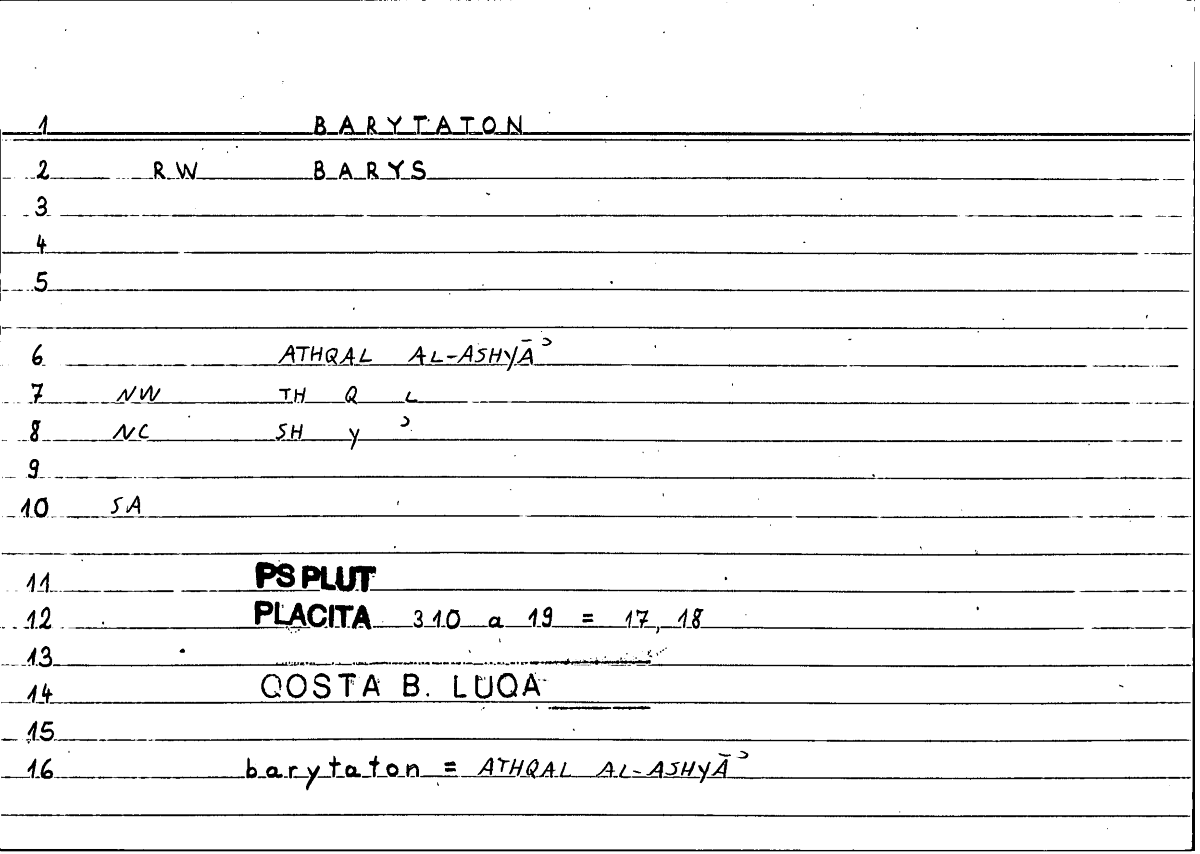 1 BARYTATON
2 RW BARYS
3
4
5
6 ATHQAL AL-ASHYĀʾ
7 NW TH Q L
8 NC SH Y ʾ
9
10 SA
11 PS PLUT
12 PLACITA 310 a 19 = 17, 18
13
14 QOSTA B. LUQA
15
16 barytaton = ATHQAL AL-ASHYĀʾ